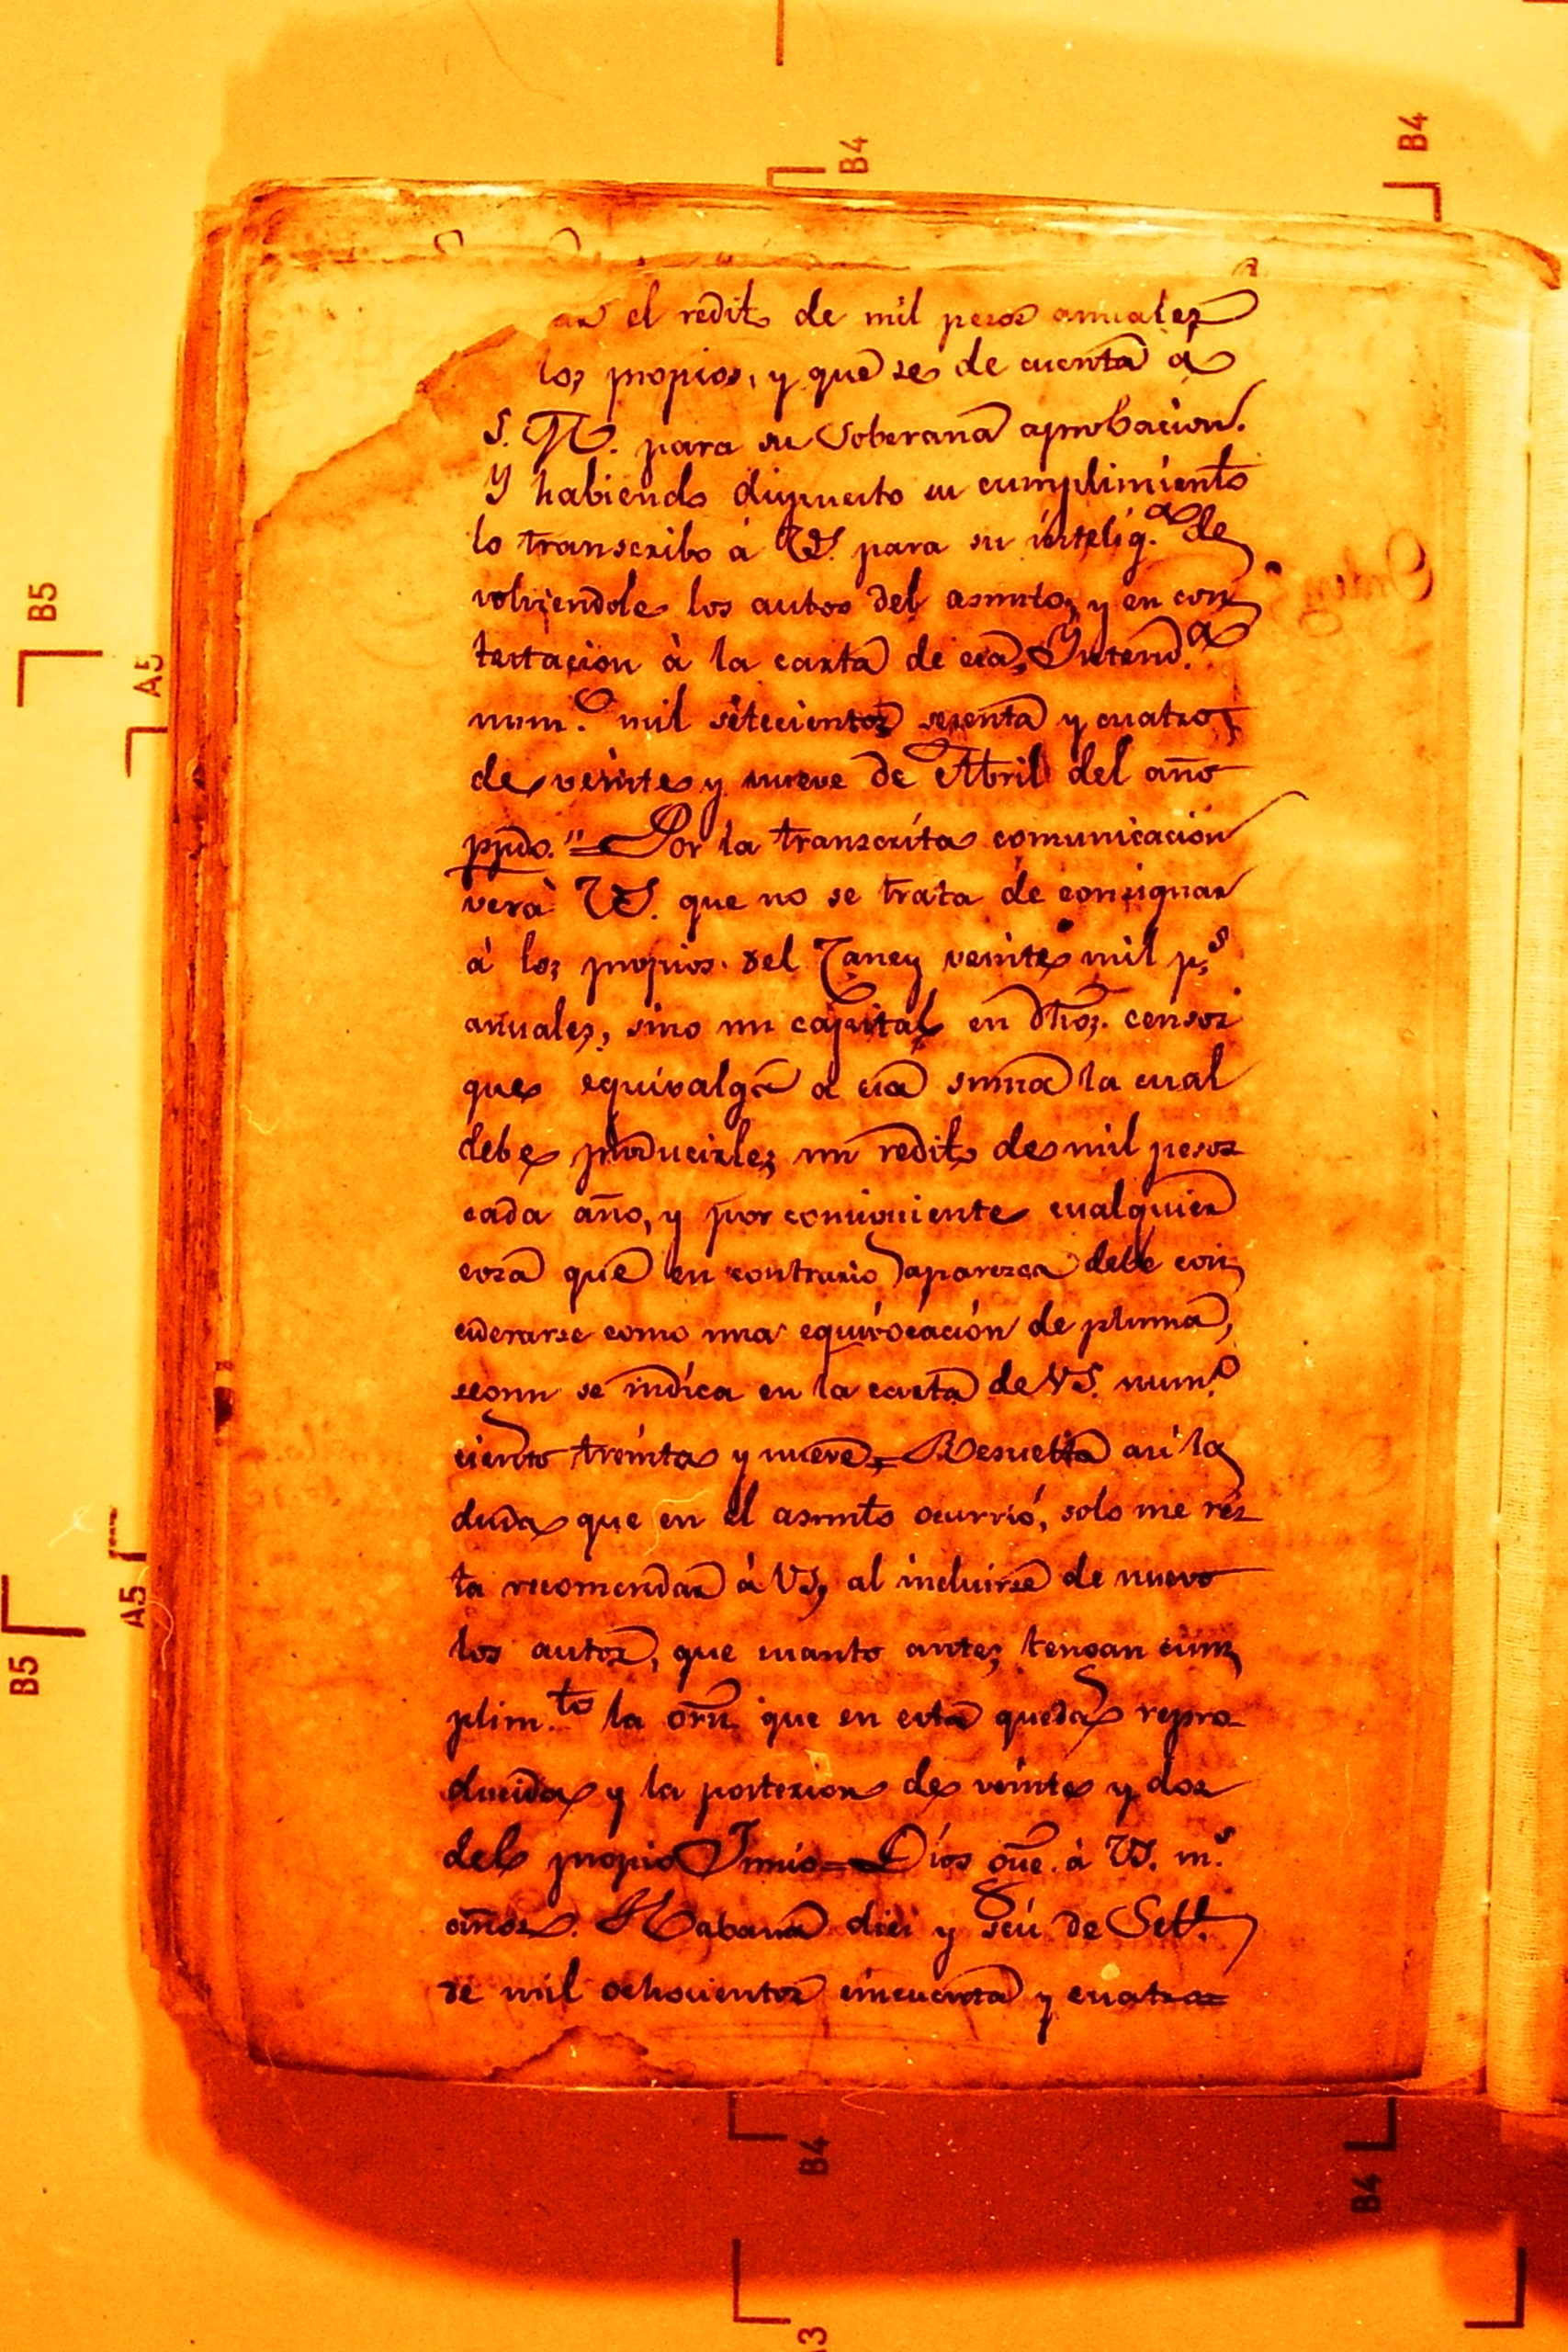 el redito de mil pesos anuales
los propios, y que se de cuenta a
S. M. para su Soberana aprobacion.
Y habiendo dispuesto su cumplimiento
lo transcribo á VS. para su intelig.a de
volviendole los autos del asunto, y en con
testacion à la carta de esa Intend.a
num.o mil setecientos sesenta y cuatro,
de veinte y nueve de Abril del año
ppdo." = Por la transcrita comunicacion
verà VS. que no se trata de consignar
à los propios del Caney veinte mil p.s
anuales, sino un capital en dhos. censos
que equivalga a esa suma la cual
debe producirles un redito de mil pesos
cada año, y por consiguiente cualquier
cosa que en contrario aparezca debe con
ciderarse como una equivocacion de pluma,
segun se indica en la carta de VS. num.o
ciento treinta y nueve = Resuelta asi la
duda que en el asunto ocurrió, solo me res
ta recomendar à VS, al incluirse de nuevo
los autos, que cuanto antes tengan cum
plim.to la orn que en esta queda repro
ducida y la posterior de veinte y dos
del propio Junio = Dios gue. à VS. m.s
años. Habana diez y seis de Set.e
de mil ochocientos cincuenta y cuatro =
B4
B4
B5
A5
A5
B5
B4
B4